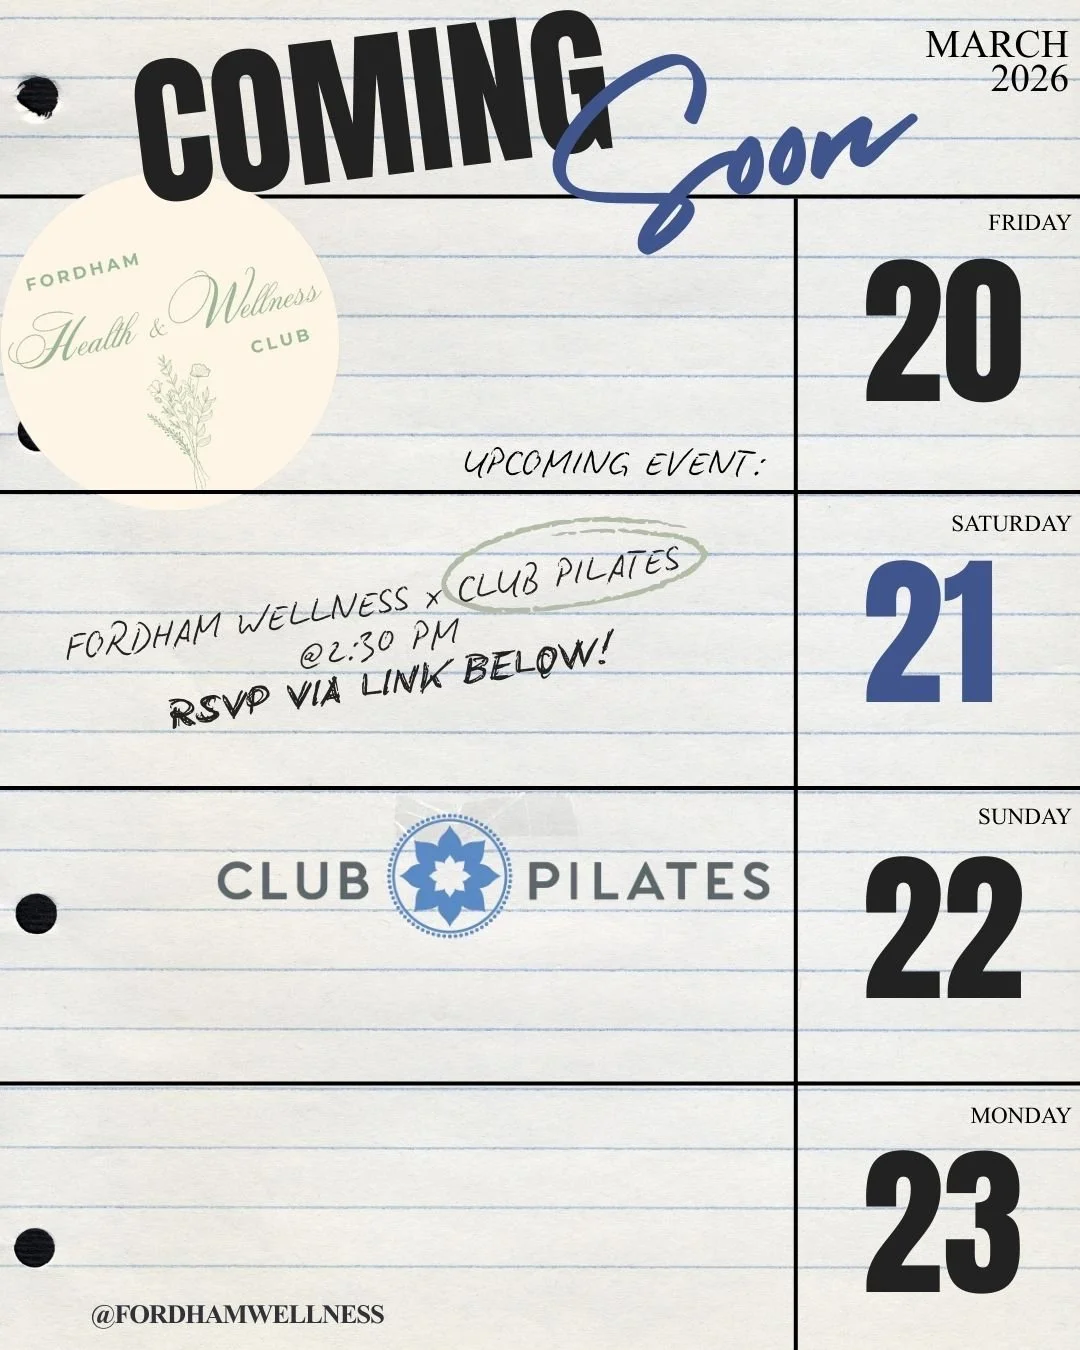 COMING Soon
MARCH
2026
FORDHAM
Health & Wellness
CLUB
FRIDAY
20
UPCOMING EVENT:
SATURDAY
21
FORDHAM WELLNESS x CLUB PILATES
@2:30 PM
RSVP VIA LINK BELOW!
SUNDAY
22
CLUB PILATES
MONDAY
23
@FORDHAMWELLNESS